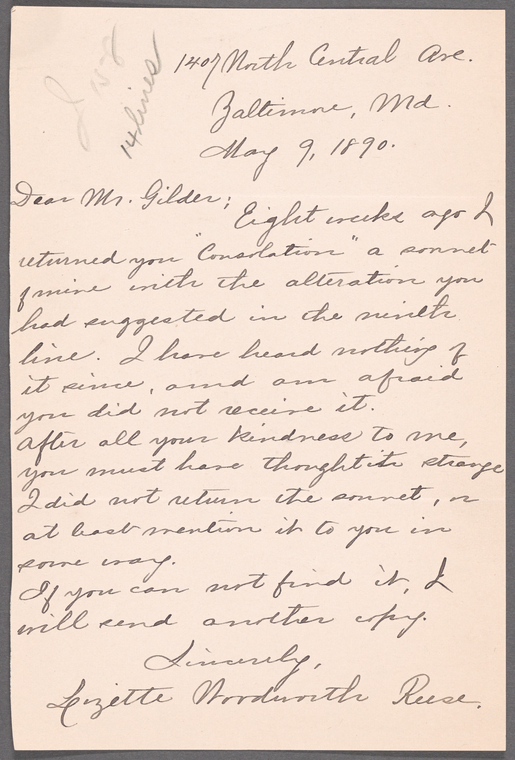 14 lines
1407 North Central Ave.
Baltimore, Md.
May 9, 1890.
Dear Mr. Gilder;
Eight weeks ago I
returned you "Consolation" a sonnet
of mine with the alteration you
had suggested in the ninth
line. I have heard nothing of
it since, and am afraid
you did not receive it.
After all your kindness to me,
you must have thought it strange
I did not return the sonnet, or
at least mention it to you in
some way.
If you can not find it, I
will send another copy.
Sincerely,
Lizette Woodworth Reese.